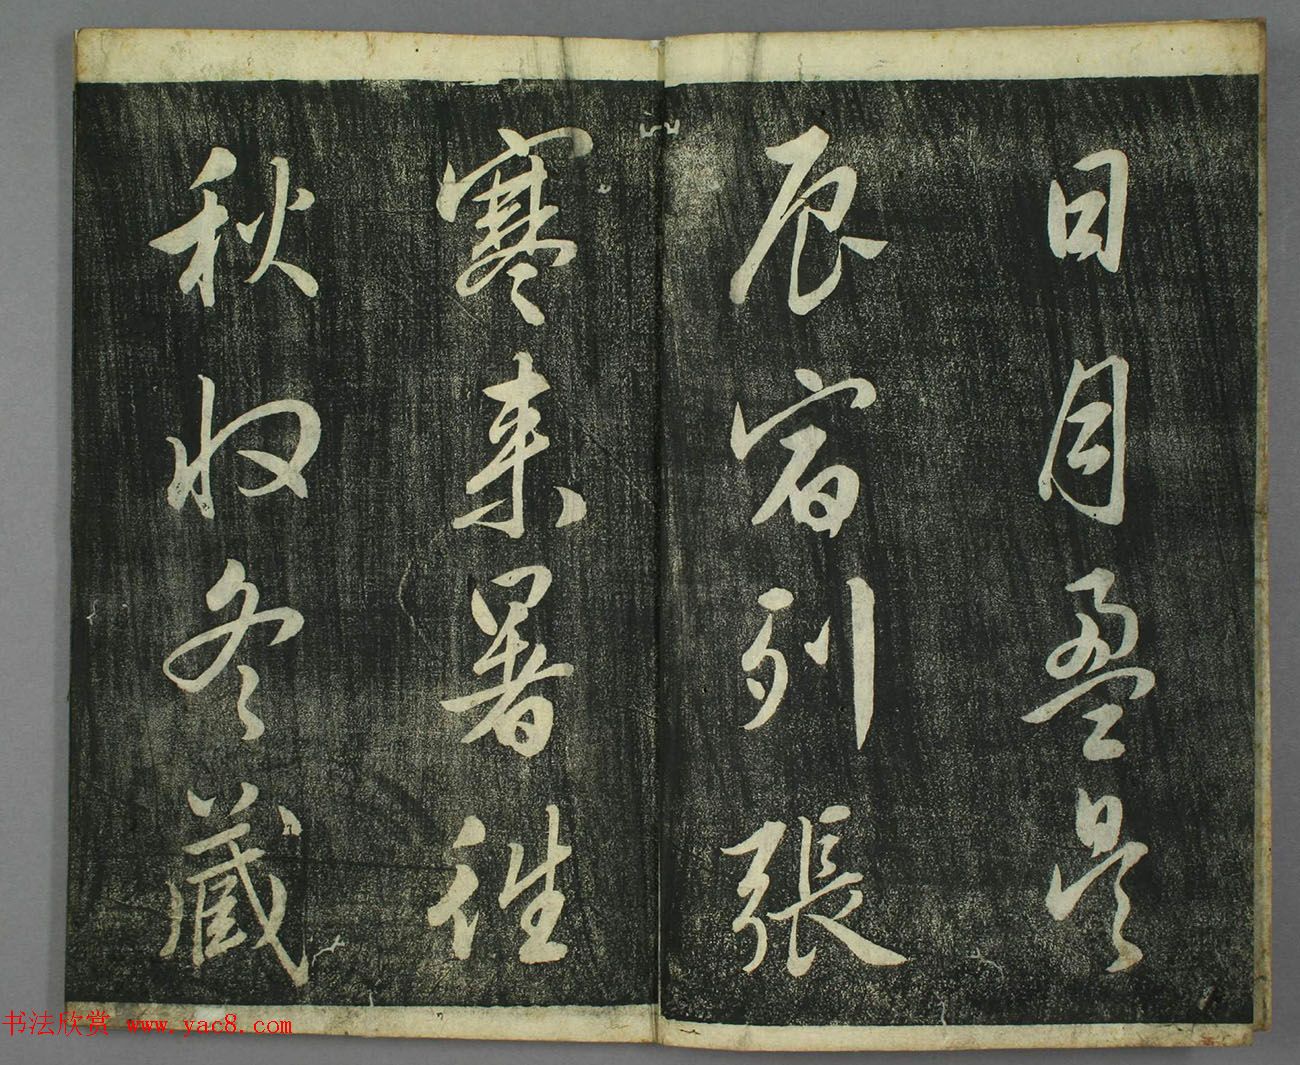 日月盈昃
辰宿列張
寒来暑往
秋收冬藏
书法欣赏 www.yac8.com